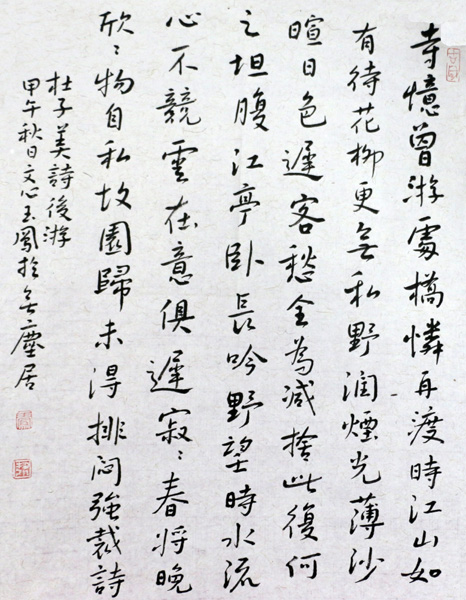 寺憶曾游處橋憐再渡時江山如
有待花柳更無私野潤煙光薄沙
暄日色遲客愁全為減捨此復何
之坦腹江亭臥長吟野望時水流
心不競雲在意俱遲寂〻春將晚
欣〻物自私故園歸未得排悶強裁詩
杜子美詩後游
甲午秋日文心玉鳳於無塵居